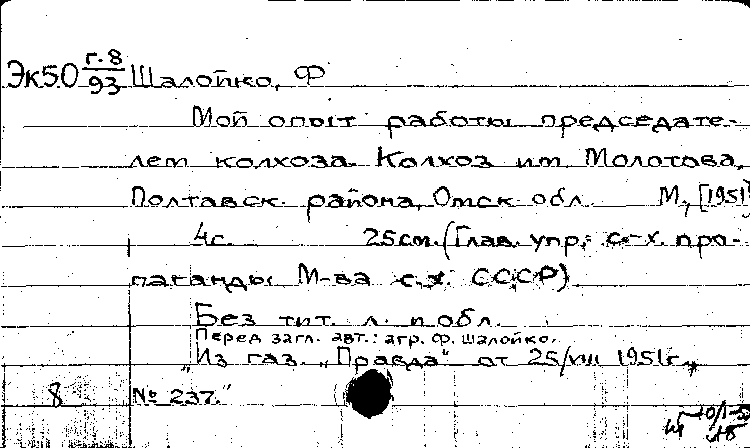 Эк50 г.8/93 Шалойко, Ф
Мой опыт работы председате-
лем колхоза. Колхоз им Молотова,
Полтавск. района, Омск обл. М., [1951]
4с. 25см. (Глав. упр. с.-х. про-
паганды М-ва с.х. СССР)
Без тит. л. и обл.
Перед загл. авт.: агр. Ф. Шалойко.
"Из газ. "Правда" от 25/VIII 1951г.,
8 № 237."